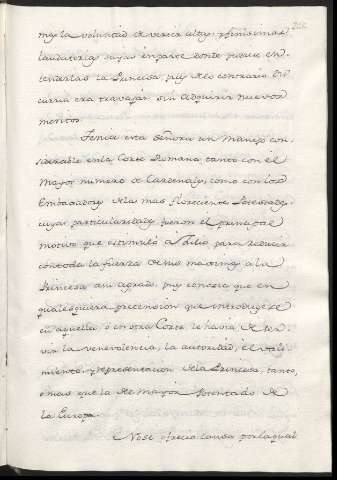 mas la voluntad de verter altas, y finisimas
laudatorias suyas en parte donde pudiese en-
tenderlas la Princesa, pues de lo contrario
era travajar sin adquirir nuevos
meritos.
Tenia esta señora un manejo con-
siderable en la Corte Romana tanto con el
mayor numero de Cardenales, como con los
Embaxadores de las mas florecientes Potestades,
cuyas particularidades fueron el principal
motivo que estimuló a Julio para reducir
con toda la fuerza de sus maximas, a la
Princesa a su agrado, pues conocia que en
qualesquiera pretencion que introdugese
en aquella, ó en otra Corte le havia de ser-
vir la venevolencia, la autoridad, el vali-
miento, y representacion de la Princesa, tanto,
ó mas que la de mayor Potentado de
la Europa.
No se ofrecia lanse por la qual